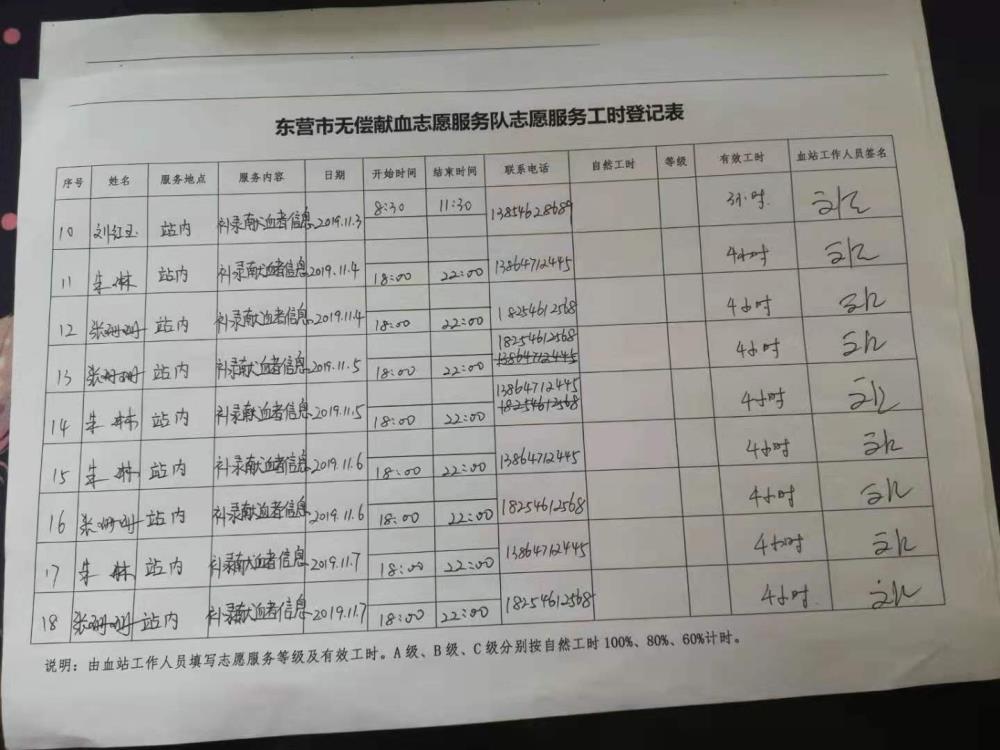 东营市无偿献血志愿服务队志愿服务工时登记表
序号 姓名 服务地点 服务内容 日期 开始时间 结束时间 联系电话 自然工时 等级 有效工时 血站工作人员签名
10 刘红玉 站内 补录献血者信息 2019.11.3 8:30 11:30 13854628689 3小时
11 朱琳 站内 补录献血者信息 2019.11.4 18:00 22:00 13864712445 4小时
12 张珊珊 站内 补录献血者信息 2019.11.4 18:00 22:00 18254612568 4小时
13 张珊珊 站内 补录献血者信息 2019.11.5 18:00 22:00 18254612568 13864712445 4小时
14 朱琳 站内 补录献血者信息 2019.11.5 18:00 22:00 13864712445 18254612568 4小时
15 朱琳 站内 补录献血者信息 2019.11.6 18:00 22:00 13864712445 4小时
16 张珊珊 站内 补录献血者信息 2019.11.6 18:00 22:00 18254612568 4小时
17 朱琳 站内 补录献血者信息 2019.11.7 18:00 22:00 13864712445 4小时
18 张珊珊 站内 补录献血者信息 2019.11.7 18:00 22:00 18254612568 4小时
说明：由血站工作人员填写志愿服务等级及有效工时。A级、B级、C级分别按自然工时100%、80%、60%计时。